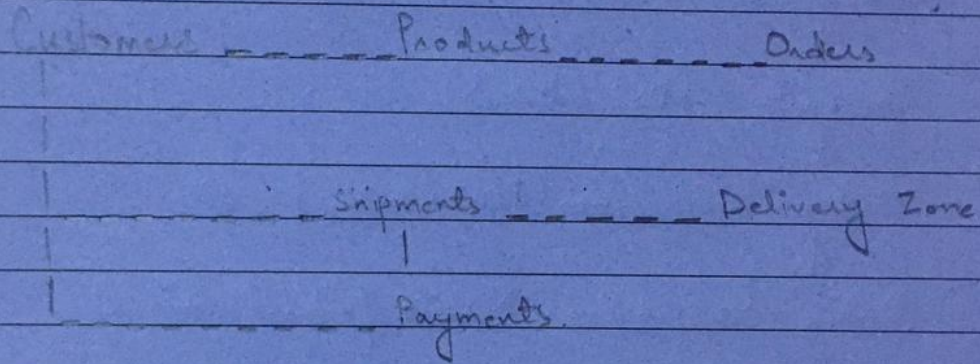 Customers Products Orders
Shipments Delivery Zone
Payments.